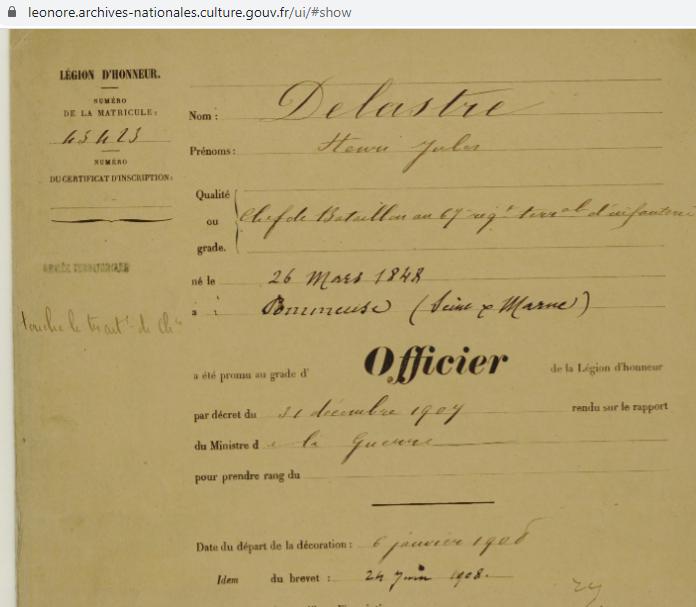 leonore.archives-nationales.culture.gouv.fr/ui/#show
LÉGION D'HONNEUR.
NUMÉRO
DE LA MATRICULE:
45425
NUMÉRO
DU CERTIFICAT D'INSCRIPTION:
ARMÉE TERRITORIALE
touche le trait.t de Ch.er
Nom : Delastre
Prénoms : Henri Jules
Qualité
ou Chef de Bataillon au 67e régt terral d'infanterie
grade.
né le 26 Mars 1848
à : Pommeuse (Seine & Marne)
a été promu au grade d' Officier de la Légion d'honneur
par décret du 31 décembre 1907 rendu sur le rapport
du Ministre de la Guerre
pour prendre rang du
Date du départ de la décoration : 6 janvier 1908
Idem du brevet : 24 juin 1908